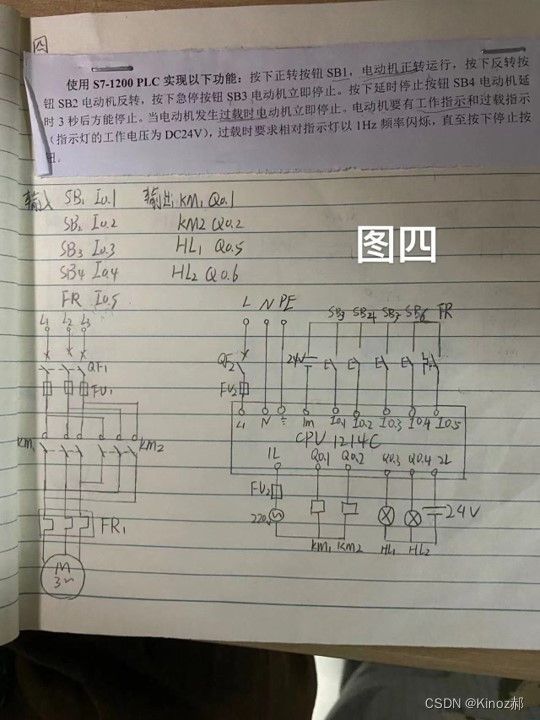 使用 S7-1200 PLC 实现以下功能：按下正转按钮 SB1，电动机正转运行，按下反转按
钮 SB2 电动机反转，按下急停按钮 SB3 电动机立即停止。按下延时停止按钮 SB4 电动机延
时 3 秒后方能停止。当电动机发生过载时电动机立即停止。电动机要有工作指示和过载指示
（指示灯的工作电压为 DC24V），过载时要求相对指示灯以 1Hz 频率闪烁，直至按下停止按
钮。
输入 SB1 I0.1 输出 KM1 Q0.1
SB2 I0.2 KM2 Q0.2
SB3 I0.3 HL1 Q0.5
SB4 I0.4 HL2 Q0.6
FR I0.5
图四
L1 L2 L3
QF1
FU1
KM1 KM2
FR1
M
3~
L N PE
SB4 FR
QF2
FU2
24V
L1 N 1m I0.1 I0.2 I0.3 I0.4 I0.5
CPU 1214C
1L Q0.1 Q0.2 Q0.3 Q0.4 2L
FU2
220
24V
KM1 KM2 HL1 HL2
CSDN @Kinoz郝